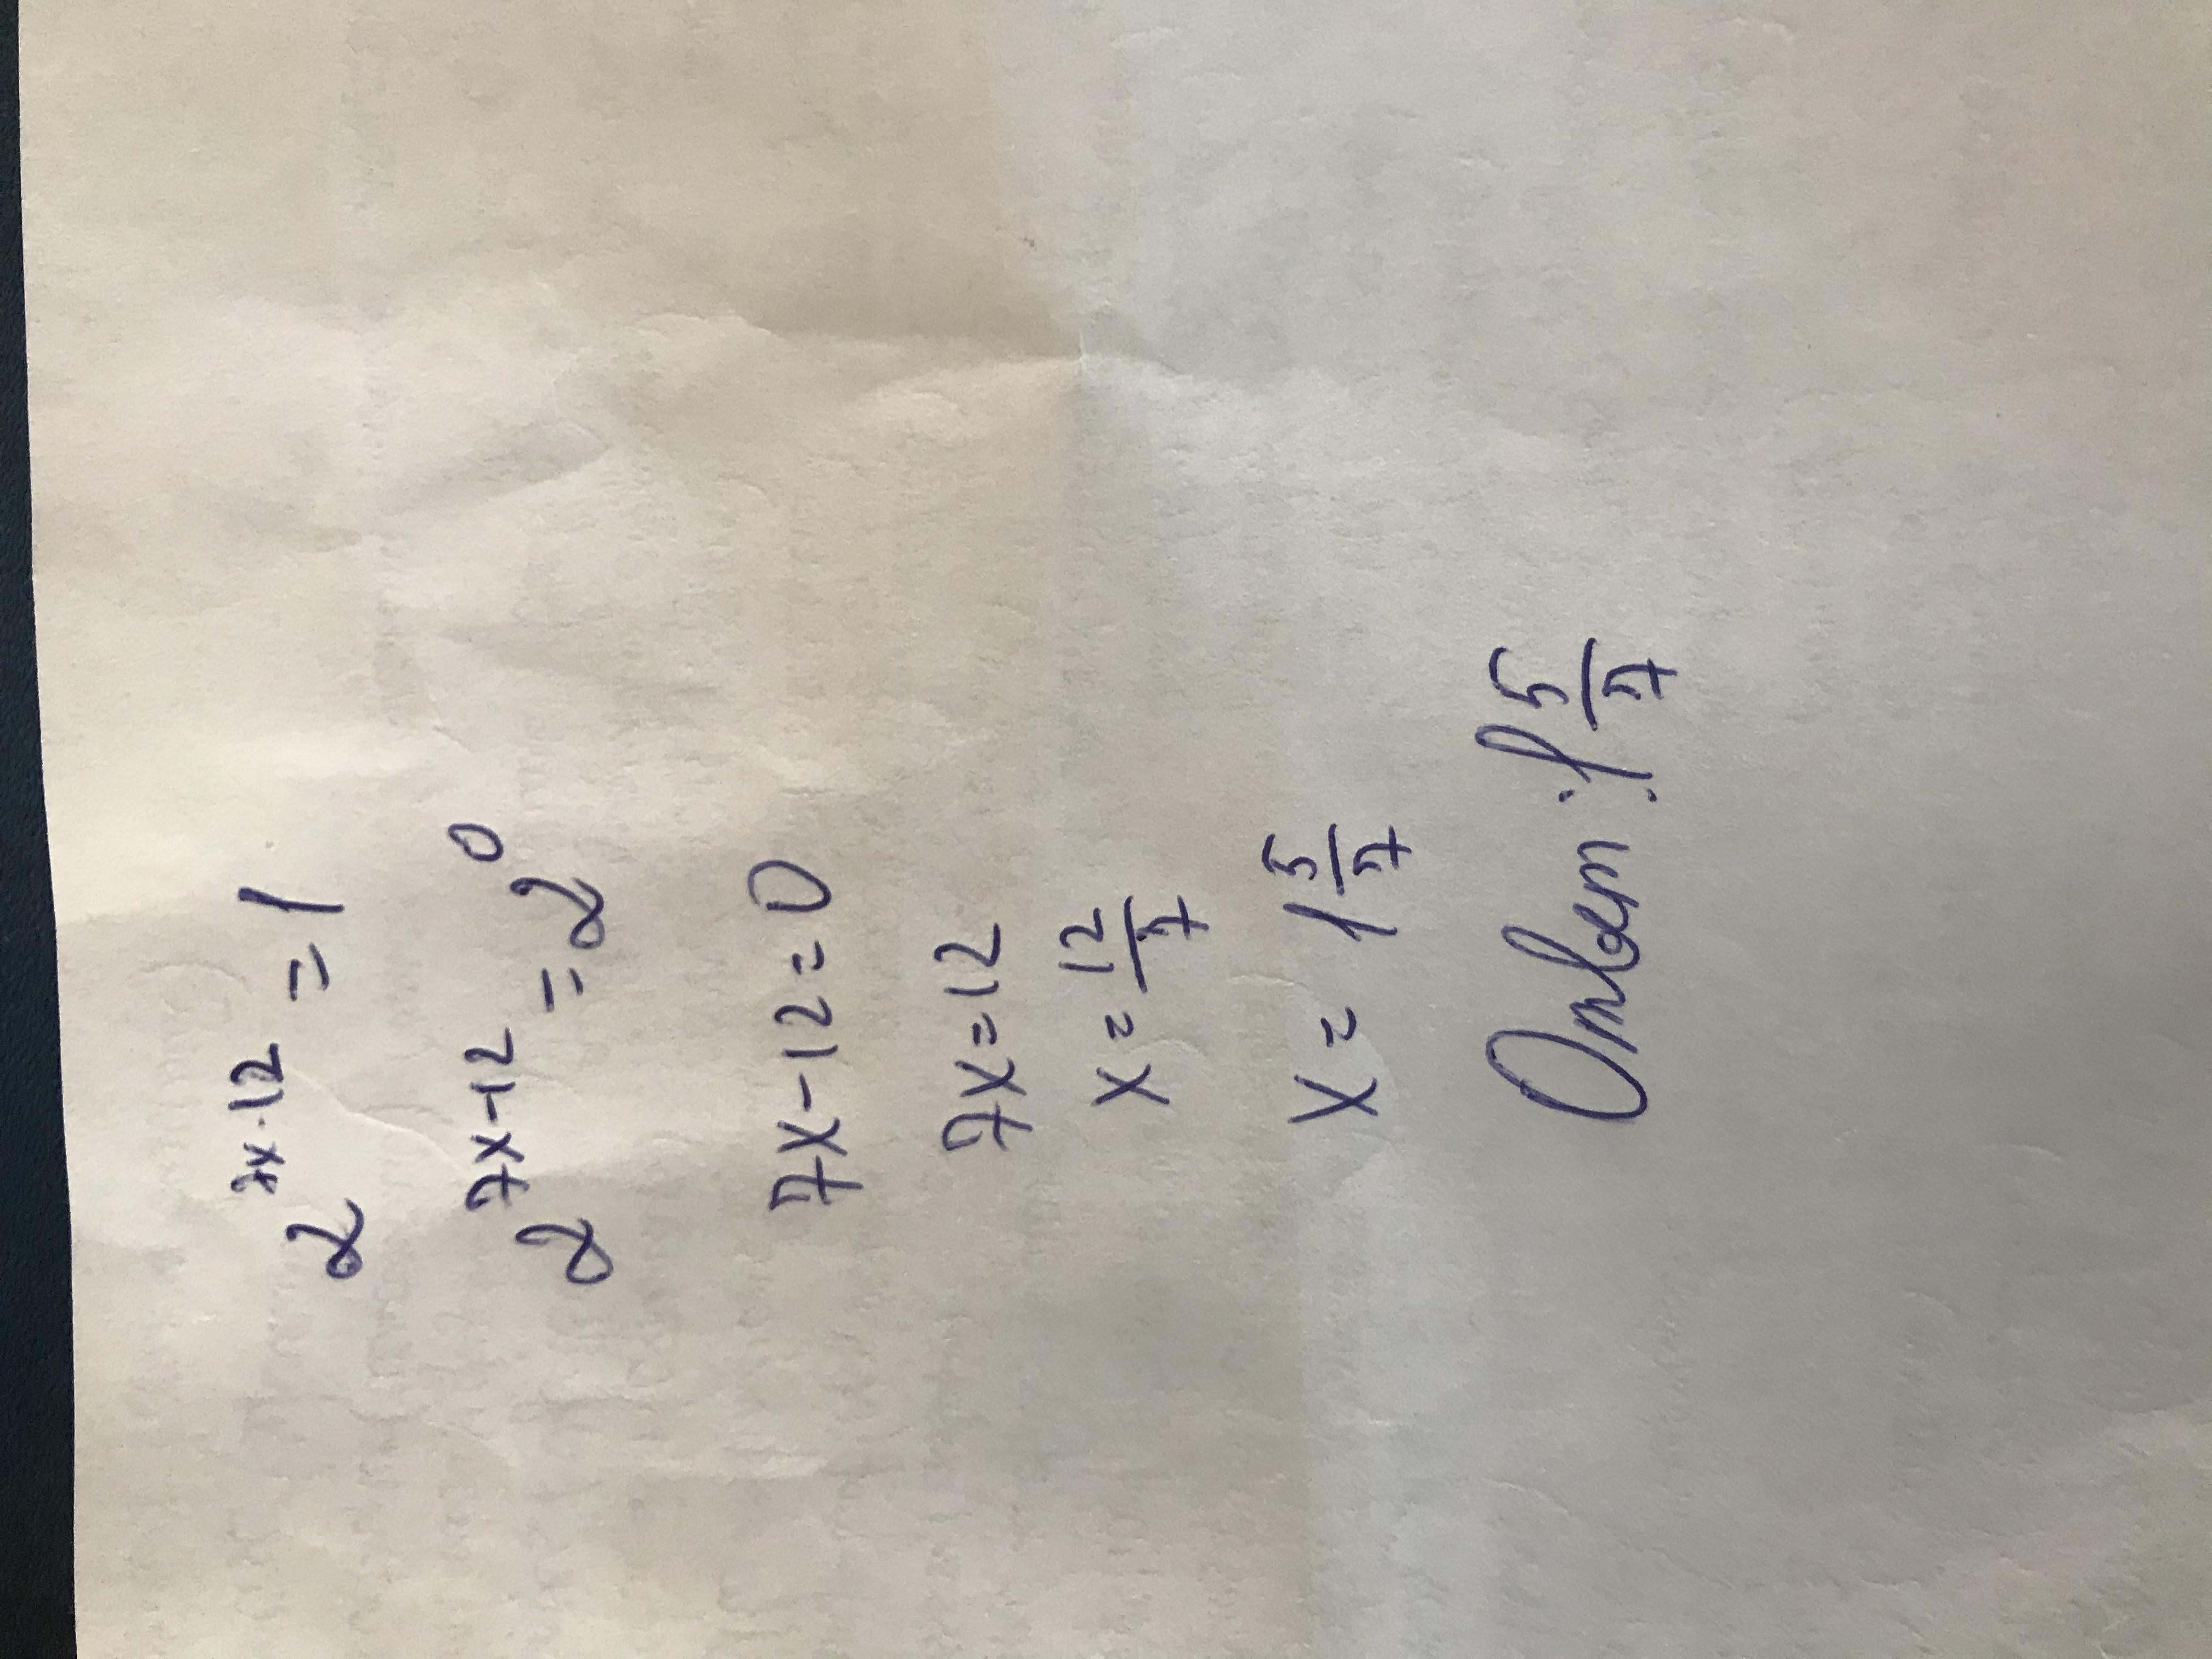 2^{7x-12} = 1
2^{7x-12} = 2^0
7x-12=0
7x=12
x=\frac{12}{7}
x= 1\frac{5}{7}
Ответ: 1\frac{5}{7}